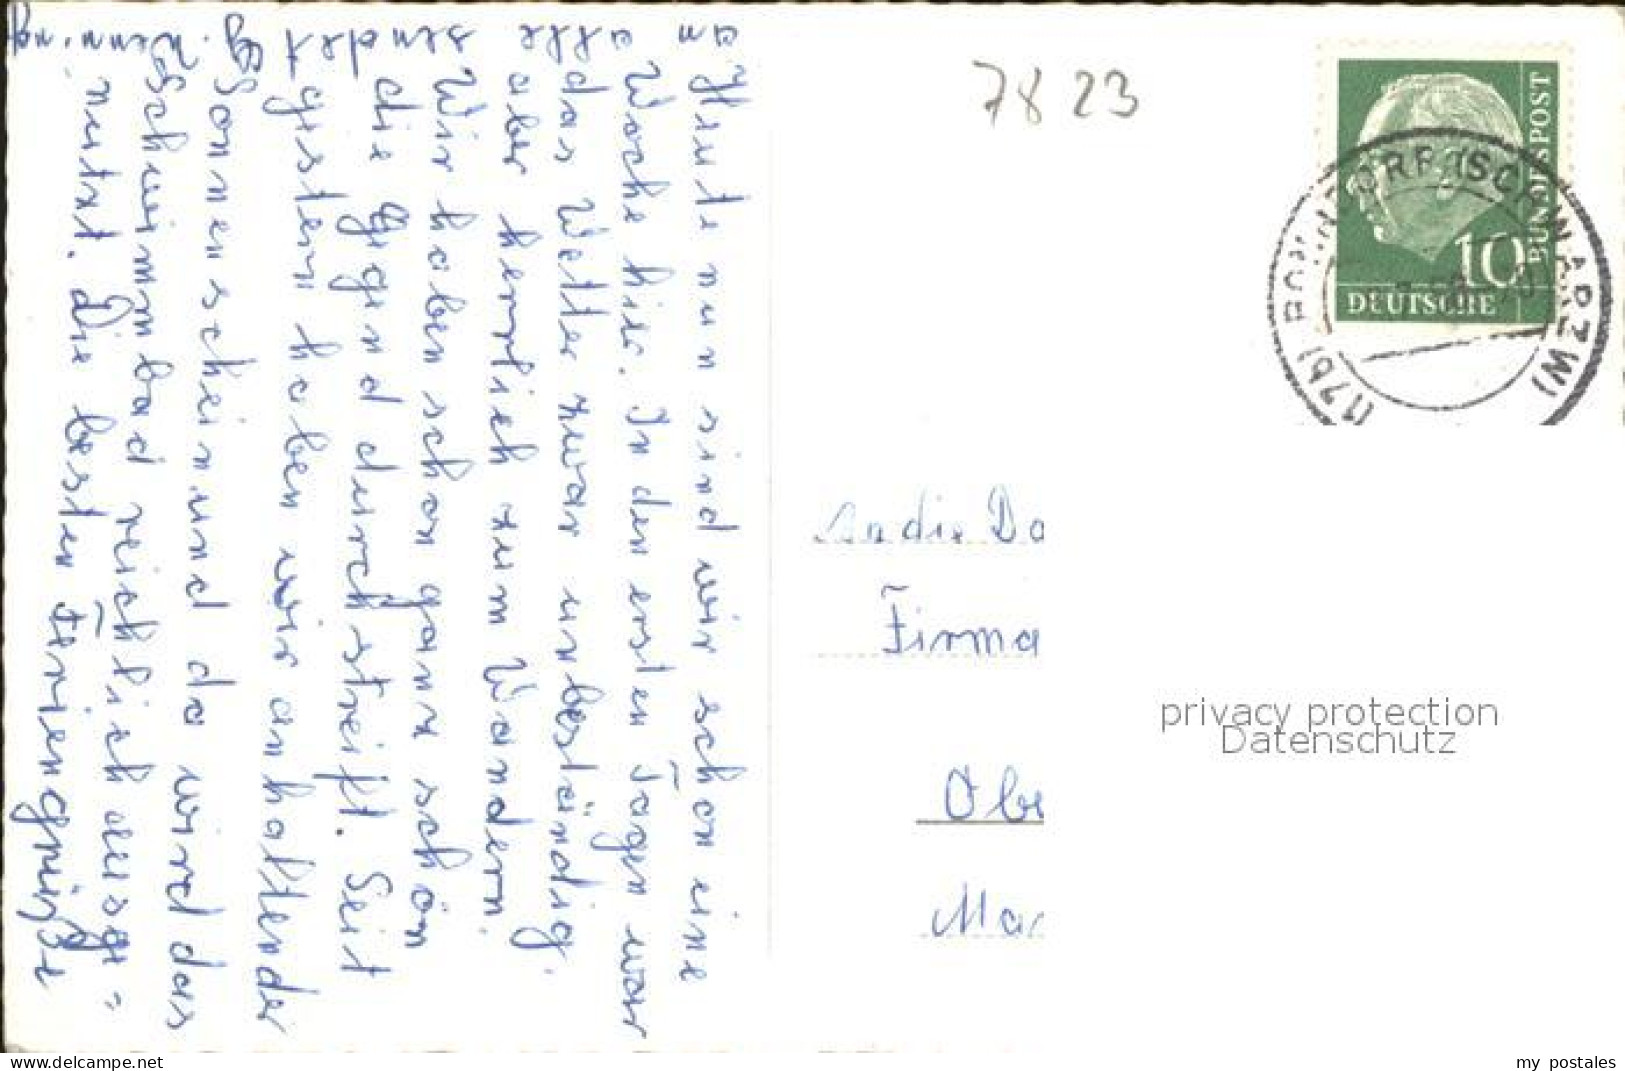 Heute nun sind wir schon eine
Woche hier. In den ersten Tagen war
das Wetter zwar unbeständig,
aber herrlich zum Wandern.
Wir haben schon ganz schön
die Gegend durchstreift. Seit
gestern haben wir anhaltender
Sonnenschein und da wird das
Schwimmbad reichlich ausge=
nutzt. Die besten Feriengrüße
an
alle
sendet
7823
10
DEUTSCHE
BUNDESPOST
(17b) BONNDORF (SCHWARZW)
An die Da
Firma
Obe
Mar
privacy protection
Datenschutz
www.delcampe.net
my_postales